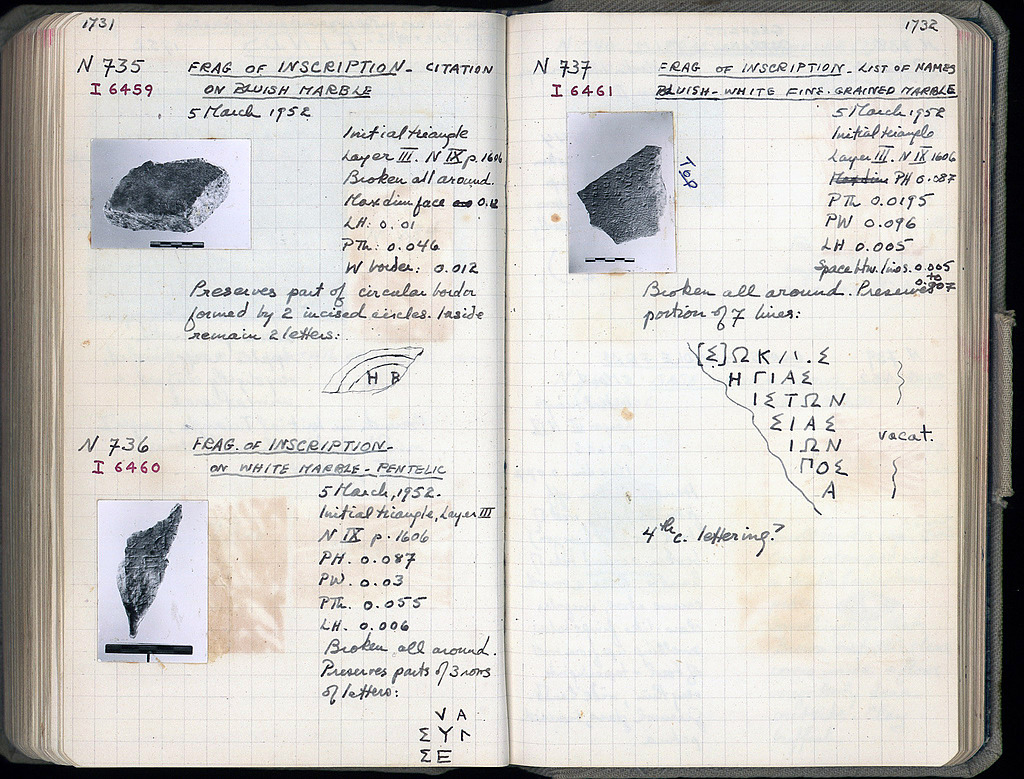 1731
N 735 FRAG OF INSCRIPTION - CITATION
I 6459 ON BLUISH MARBLE
5 March 1952
Initial triangle
Layer III. N IX p. 1606
Broken all around.
Max dim face 0.12
LH: 0.01
PTh: 0.046
W border: 0.012
Preserves part of circular border
formed by 2 incised circles. Inside
remain 2 letters:
H B
N 736 FRAG. OF INSCRIPTION-
I 6460 ON WHITE MARBLE - PENTELIC
5 March, 1952.
Initial triangle, Layer III
N IX p. 1606
PH. 0.087
PW. 0.03
PTh. 0.055
LH. 0.006
Broken all around.
Preserves parts of 3 rows
of letters:
V A
Σ Υ Γ
Σ Ε
1732
N 737 FRAG OF INSCRIPTION - LIST OF NAMES
I 6461 BLUISH-WHITE FINE-GRAINED MARBLE
5 March 1952
Initial triangle
Layer III. N IX 1606
Max dim PH 0.087
PTh 0.0195
PW 0.096
LH 0.005
Space btw. lines. 0.005
to
0.007
Top
Broken all around. Preserves
portion of 7 lines:
[Σ]ΩΚΛΙ.Σ
ΗΓΙΑΣ
ΙΣΤΩΝ
ΣΙΑΣ
vacat.
ΙΩΝ
ΠΟΣ
Α
4th c. lettering?